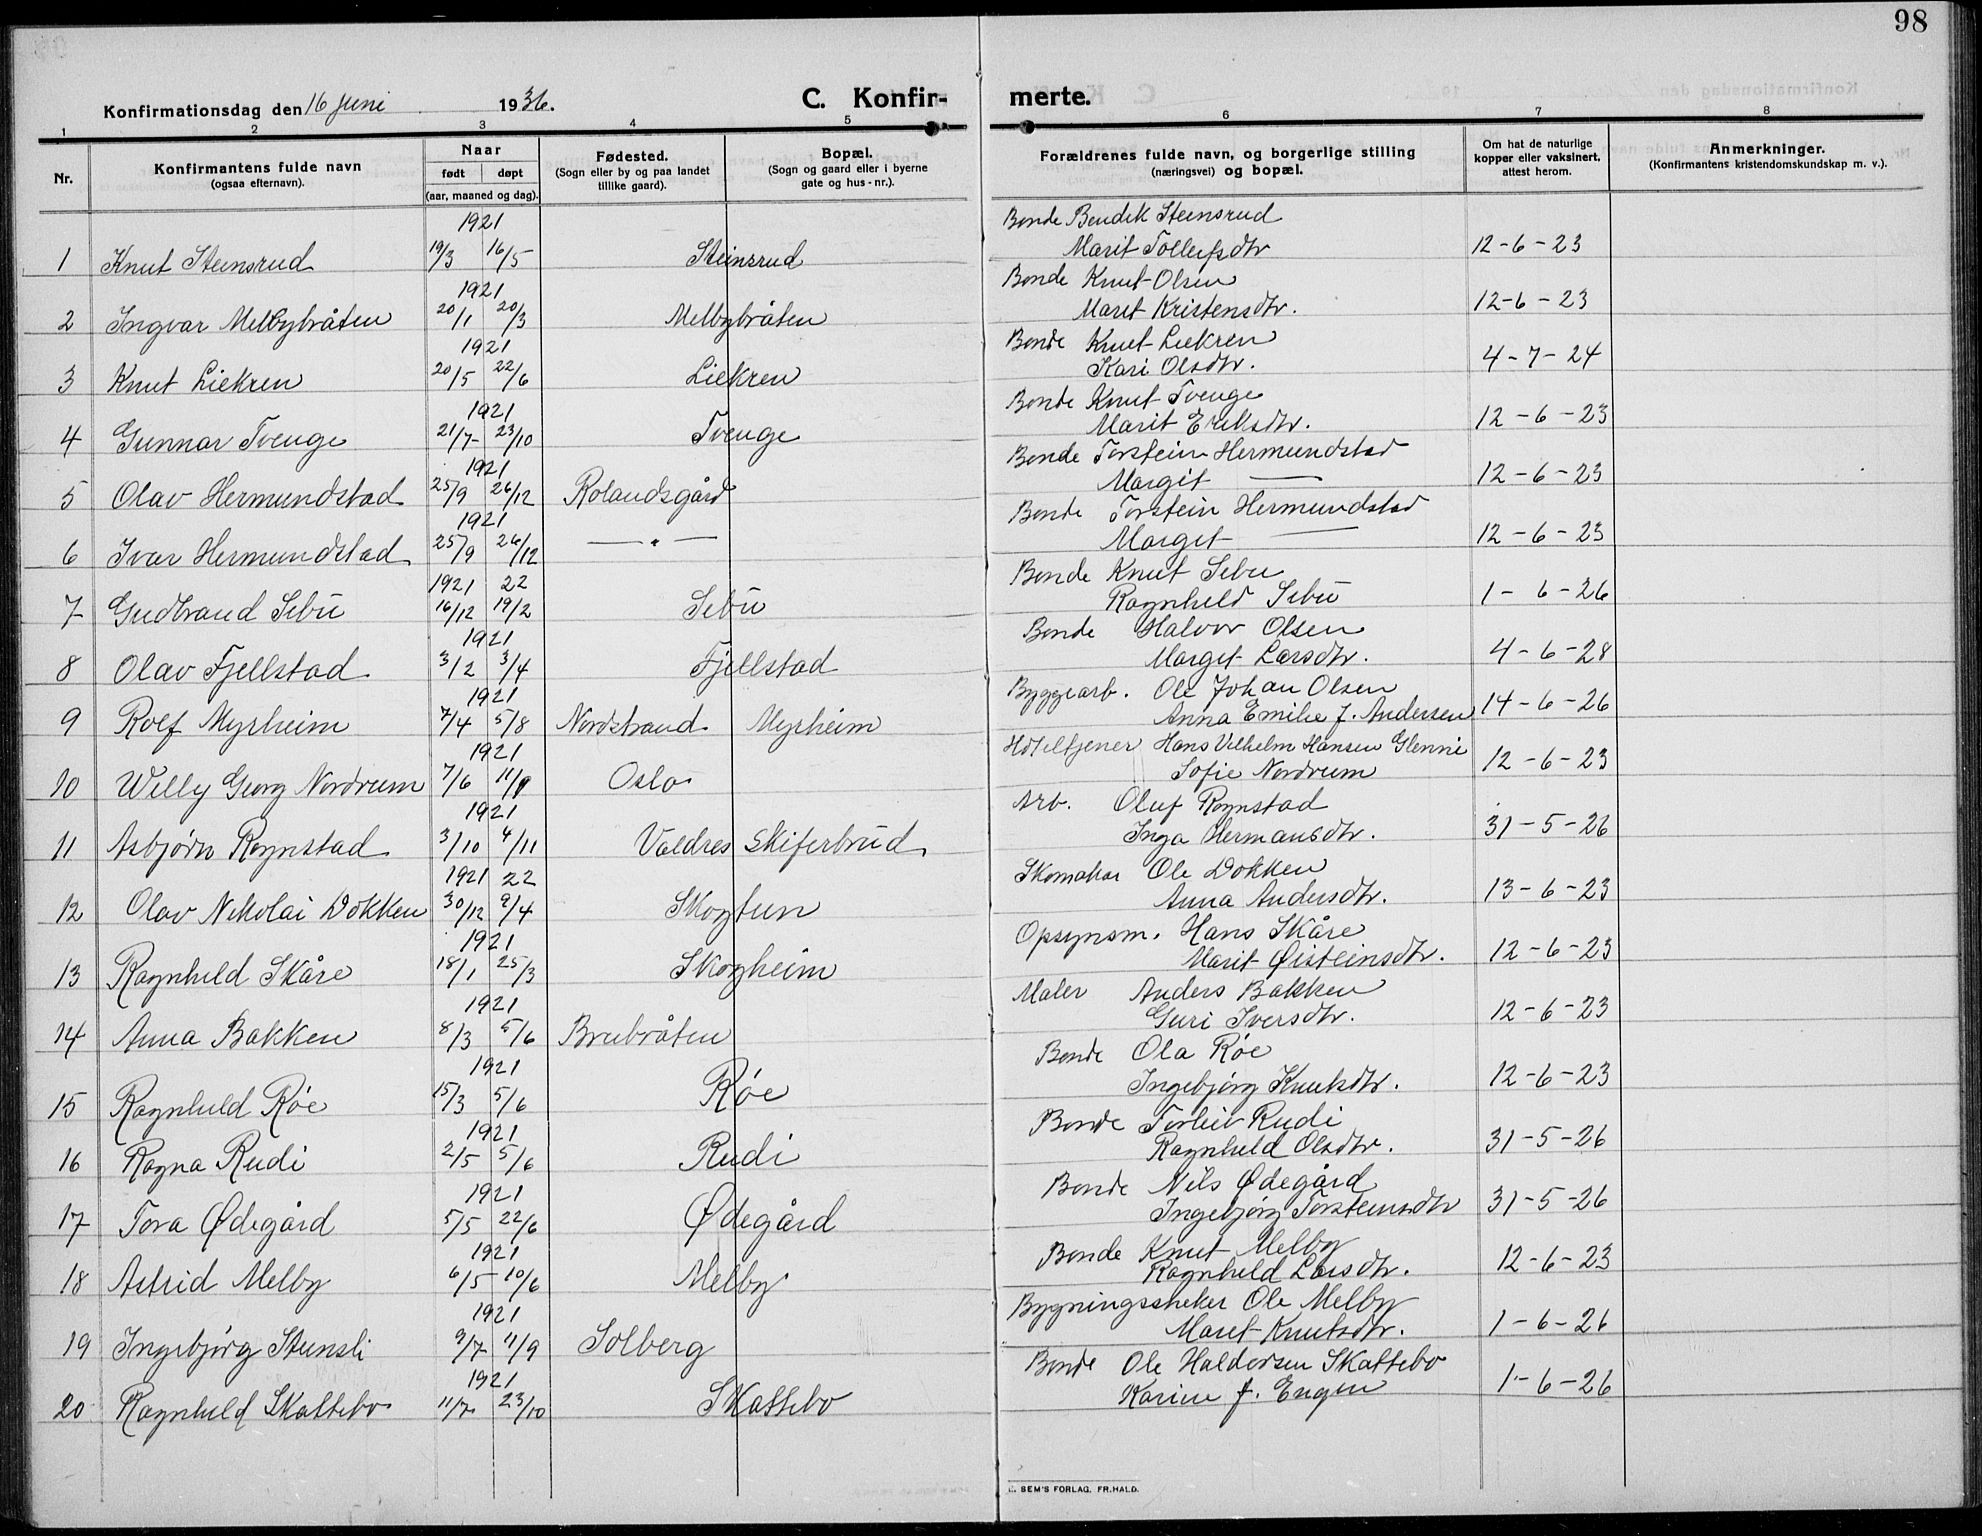 98
Konfirmationsdag den 16 juni 1936. C. Konfirmerte.
1 2 3 4 5 6 7 8
Nr. Konfirmantens fulde navn (ogsaa efternavn). Naar født døpt (aar, maaned og dag). Fødested. (Sogn eller by og paa landet tillike gaard). Bopæl. (Sogn og gaard eller i byerne gate og hus-nr.). Forældrenes fulde navn, og borgerlige stilling (næringsvei) og bopæl. Om hat de naturlige kopper eller vaksinert, attest herom. Anmerkninger. (Konfirmantens kristendomskundskap m. v.).
1921 Bonde Bendik Steinsrud
1 Knut Steinsrud 19/3 16/5 Steinsrud Marit Tollefsdtr 12-6-23
1921 Bonde Knut Olsen
2 Ingvar Melbybråten 20/1 20/3 Melbybråten Marit Kristensdtr. 12-6-23
1921 Bonde Knut Liekren
3 Knut Liekren 20/5 22/6 Liekren Kari Olsdtr. 4-7-24
1921 Bonde Knut Tvenge
4 Gunnar Tvenge 21/7 23/10 Tvenge Marit Eriksdtr. 12-6-23
1921 Bonde Torstein Hermundstad
5 Olav Hermundstad 25/9 26/12 Rolandsgård Margit — 12-6-23
1921 Bonde Torstein Hermundstad
6 Ivar Hermundstad 25/9 26/12 — " — Margit — 12-6-23
1921 22 Bonde Knut Sebu
7 Gudbrand Sebu 16/12 19/2 Sebu Ragnhild Sebu 1-6-26
1921 Bonde Halvor Olsen
8 Olav Fjellstad 3/2 3/4 Fjellstad Marget Larsdtr. 4-6-28
1921 Byggearb. Ole Johan Olsen
9 Rolf Myrheim 7/4 5/8 Nordstrand Myrheim Anna Emilie f. Andersen 14-6-26
1921 Hotelltjener Hans Vilhelm Hansen Glenne
10 Willy Georg Nordrum 7/6 11/9 Oslo Sofie Nordrum 12-6-23
1921 Arb. Oluf Rognstad
11 Asbjørn Rognstad 3/10 4/11 Valdres Skiferbrud Inga Hermansdtr. 31-5-26
1921 22 Skomaker Ole Dokken
12 Olav Nikolai Dokken 30/12 9/4 Skogtun Anna Andersdtr. 13-6-23
1921 Opsynsm. Hans Skåre
13 Ragnhild Skåre 18/1 25/3 Skogheim Marit Øisteinsdtr. 12-6-23
1921 Maler Anders Bakken
14 Anna Bakken 8/3 5/6 Brubråten Guri Iversdtr. 12-6-23
1921 Bonde Ola Røe
15 Ragnhild Røe 15/3 5/6 Røe Ingebjørg Knutsdtr. 12-6-23
1921 Bonde Torleiv Rudi
16 Ragna Rudi 2/5 5/6 Rudi Ragnhild Olsdtr. 31-5-26
1921 Bonde Nils Ødegård
17 Tora Ødegård 5/5 22/6 Ødegård Ingebjørg Torsteinsdtr 31-5-26
1921 Bonde Knut Melby
18 Astrid Melby 6/5 10/6 Melby Ragnhild Larsdtr. 12-6-23
1921 Ole Melby
19 Ingebjørg Stensli 9/7 11/9 Solberg Marit Knutsdtr. 1-6-26
1921 Bonde Ole Haldorsen Skattebo
20 Ragnhild Skattebo 11/7 23/10 Skattebo Karine f. Engen 1-6-26
SEM'S FORLAG, FR.HALD.